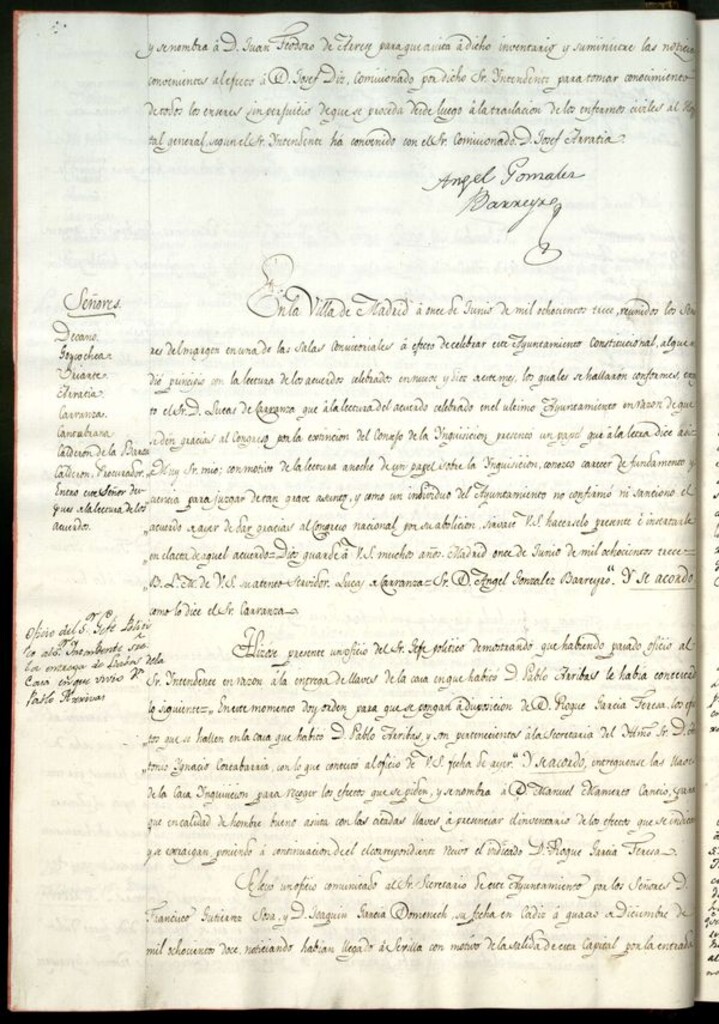 y se nombra à D. Juan Teodoro de para que asista à dicho inventario y suministre las noticias
convenientes al efecto à D. Josef Diz, comisionado por dicho Sr. Yntendente para tomar conocimiento
de todos los enseres sin perjuicio de que se proceda desde luego à la traslacion de los enfermos civiles al Hospi
tal general, segun el Sr. Yntendente ha convenido con el Sr. Comisionado D. Josef Arratia.
Angel Gonzalez
Barreyro
En la Villa de Madrid à once de Junio de mil ochocientos trece, reunidos los Seño
res del margen en una de las Salas Consistoriales à efecto de celebrar este Ayuntamiento Constitucional, al que se
dió principio con la lectura de los acuerdos celebrados en nueve y diez de este mes, los quales se hallaron conformes,
to el Sr. D. Lucas de Carranza que à la lectura del acuerdo celebrado en el ultimo Ayuntamiento en razon de que
se den gracias al Congreso por la extincion del Consejo de la Ynquisicion presento un papel que à la letra dice asi:
Muy Sr. mio; con motivo de la lectura anoche de un papel sobre la Ynquisicion, conozco carecer de fundamento y
ciencia para juzgar de tan grave asunto, y como un individuo del Ayuntamiento no confirmó ni sancionó el
acuerdo de ayer de dar gracias al Congreso nacional por su abolicion, sirvase V.S. hacerselo presente è insertarle
en el acta de aquel acuerdo = Dios guarde à V.S. muchos años. Madrid once de Junio de mil ochocientos trece =
B. L. M. de V.S. su atento Servidor. Lucas de Carranza = Sr. D. Angel Gonzalez Barreyro". Y se acordo
como lo dice el Sr. Carranza.
Hizose presente un oficio del Sr. Gefe politico demostrando que habiendo pasado oficio al
Sr. Yntendente en razon à la entrega de llaves de la casa en que habitó D. Pablo Arribas le habia contestado
lo siguiente = En este momento doy orden para que se pongan à disposicion de D. Roque Garcia Teresa, los efec
tos que se hallen en la casa que habitó D. Pablo Arribas, y son pertenecientes à la Secretaria del Yltmo. Sr. D. An
tonio Ygnacio Cortabarria, con lo que contesto al oficio de V.S. fecha de ayer." Y se acordo, entreguense las llaves
de la Casa Ynquisicion para recoger los efectos que se piden, y se nombra à D. Manuel Mamerto Cancio, para
que en calidad de hombre bueno asista con las citadas llaves à presenciar el inventario de los efectos que se indican
y se extraigan, poniendo à continuacion de el el correspondiente recivo el indicado D. Roque Garcia Teresa.
Se leyó un oficio comunicado al Sr. Secretario de este Ayuntamiento por los Señores D.
Francisco Gutierrez Sosa, y D. Joaquin Garcia Domenech, su fecha en Cadiz à de Diciembre de
mil ochocientos doce, noticiando habian llegado à Sevilla con motivo de la salida de esta Capital por la entrada
Señores.
Decano.
Goycochea.
Yriarte.
Arratia.
Carranza.
Cantabrana.
Calderon de la Barca
Calderon, Procurador.
Entro este Señor des
pues de la lectura de los
acuerdos.
Oficio del Sr. Gefe Politi
co al Sr. Yntendente so
bre entrega de llaves de la
Casa en que vivio Dn.
Pablo Arrivas